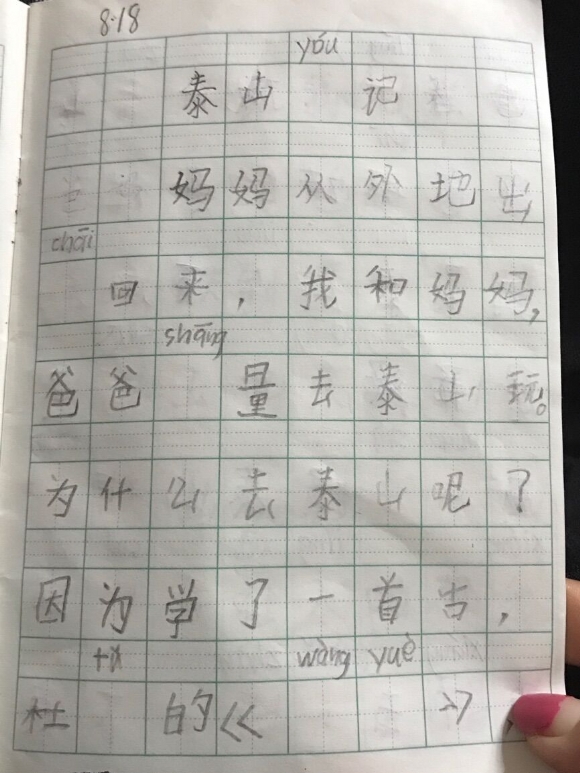 8.18
yóu
泰山 记
妈妈从外地出
chāi
回来，我和妈妈，
shāng
爸爸 量去泰山玩。
为什么去泰山呢？
因为学了一首古，
wàng yuè
杜 的《 》，